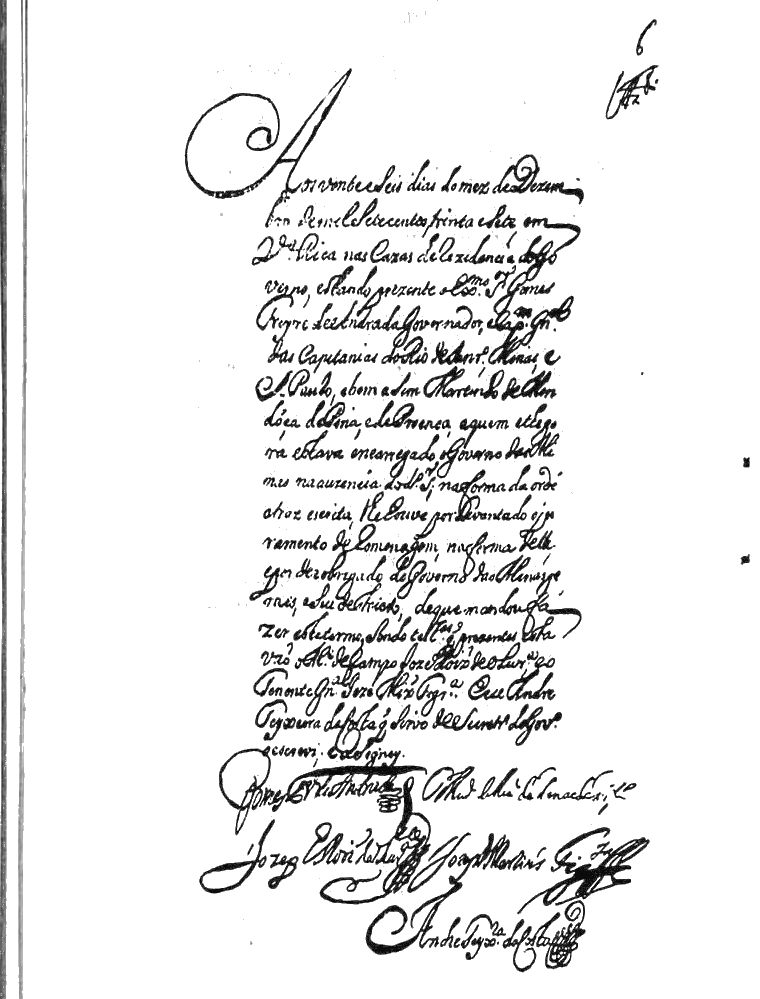 6
Aos vente e seis dias do mez de Dezem
bro de mil e Setecentos trinta e sete, em
V.ª Rica nas Cazas de Rezidencia do Go
verno, estando prezente o Ex.mo S.r Gomes
Freyre de Andrada Governador, e Cap.m Gn.al
das Capitanias do Rio de Janr.º, Minas, e
S. Paulo, e bem asim Martinho de Men
dóça de Pina, e de Proença, a quem athe go
ra estava encarregado o Governo das Mi
nas na auzencia do d.º S.r, na forma da ordẽ
atraz escrita, lhe houve por levantado o ju
ramento de homenagem, na forma della,
e por dezobrigado do Governo das Minas ge
raes, e seu destricto, de que mandou fa
zer este termo, sendo test.as q prezentes esta
vão o M.e de Campo Joze de Olivr.a e o
Tenente Gn.al Joze Miz Figr.a E eu Andre
Teyxeira da Costa q sirvo de Secretr.º do Gov.º
o escrevi, e asigney.
Gomes Fr.e de Andrada
Joseph Martins Fig.ra
Andre Teyx.ra da Costa